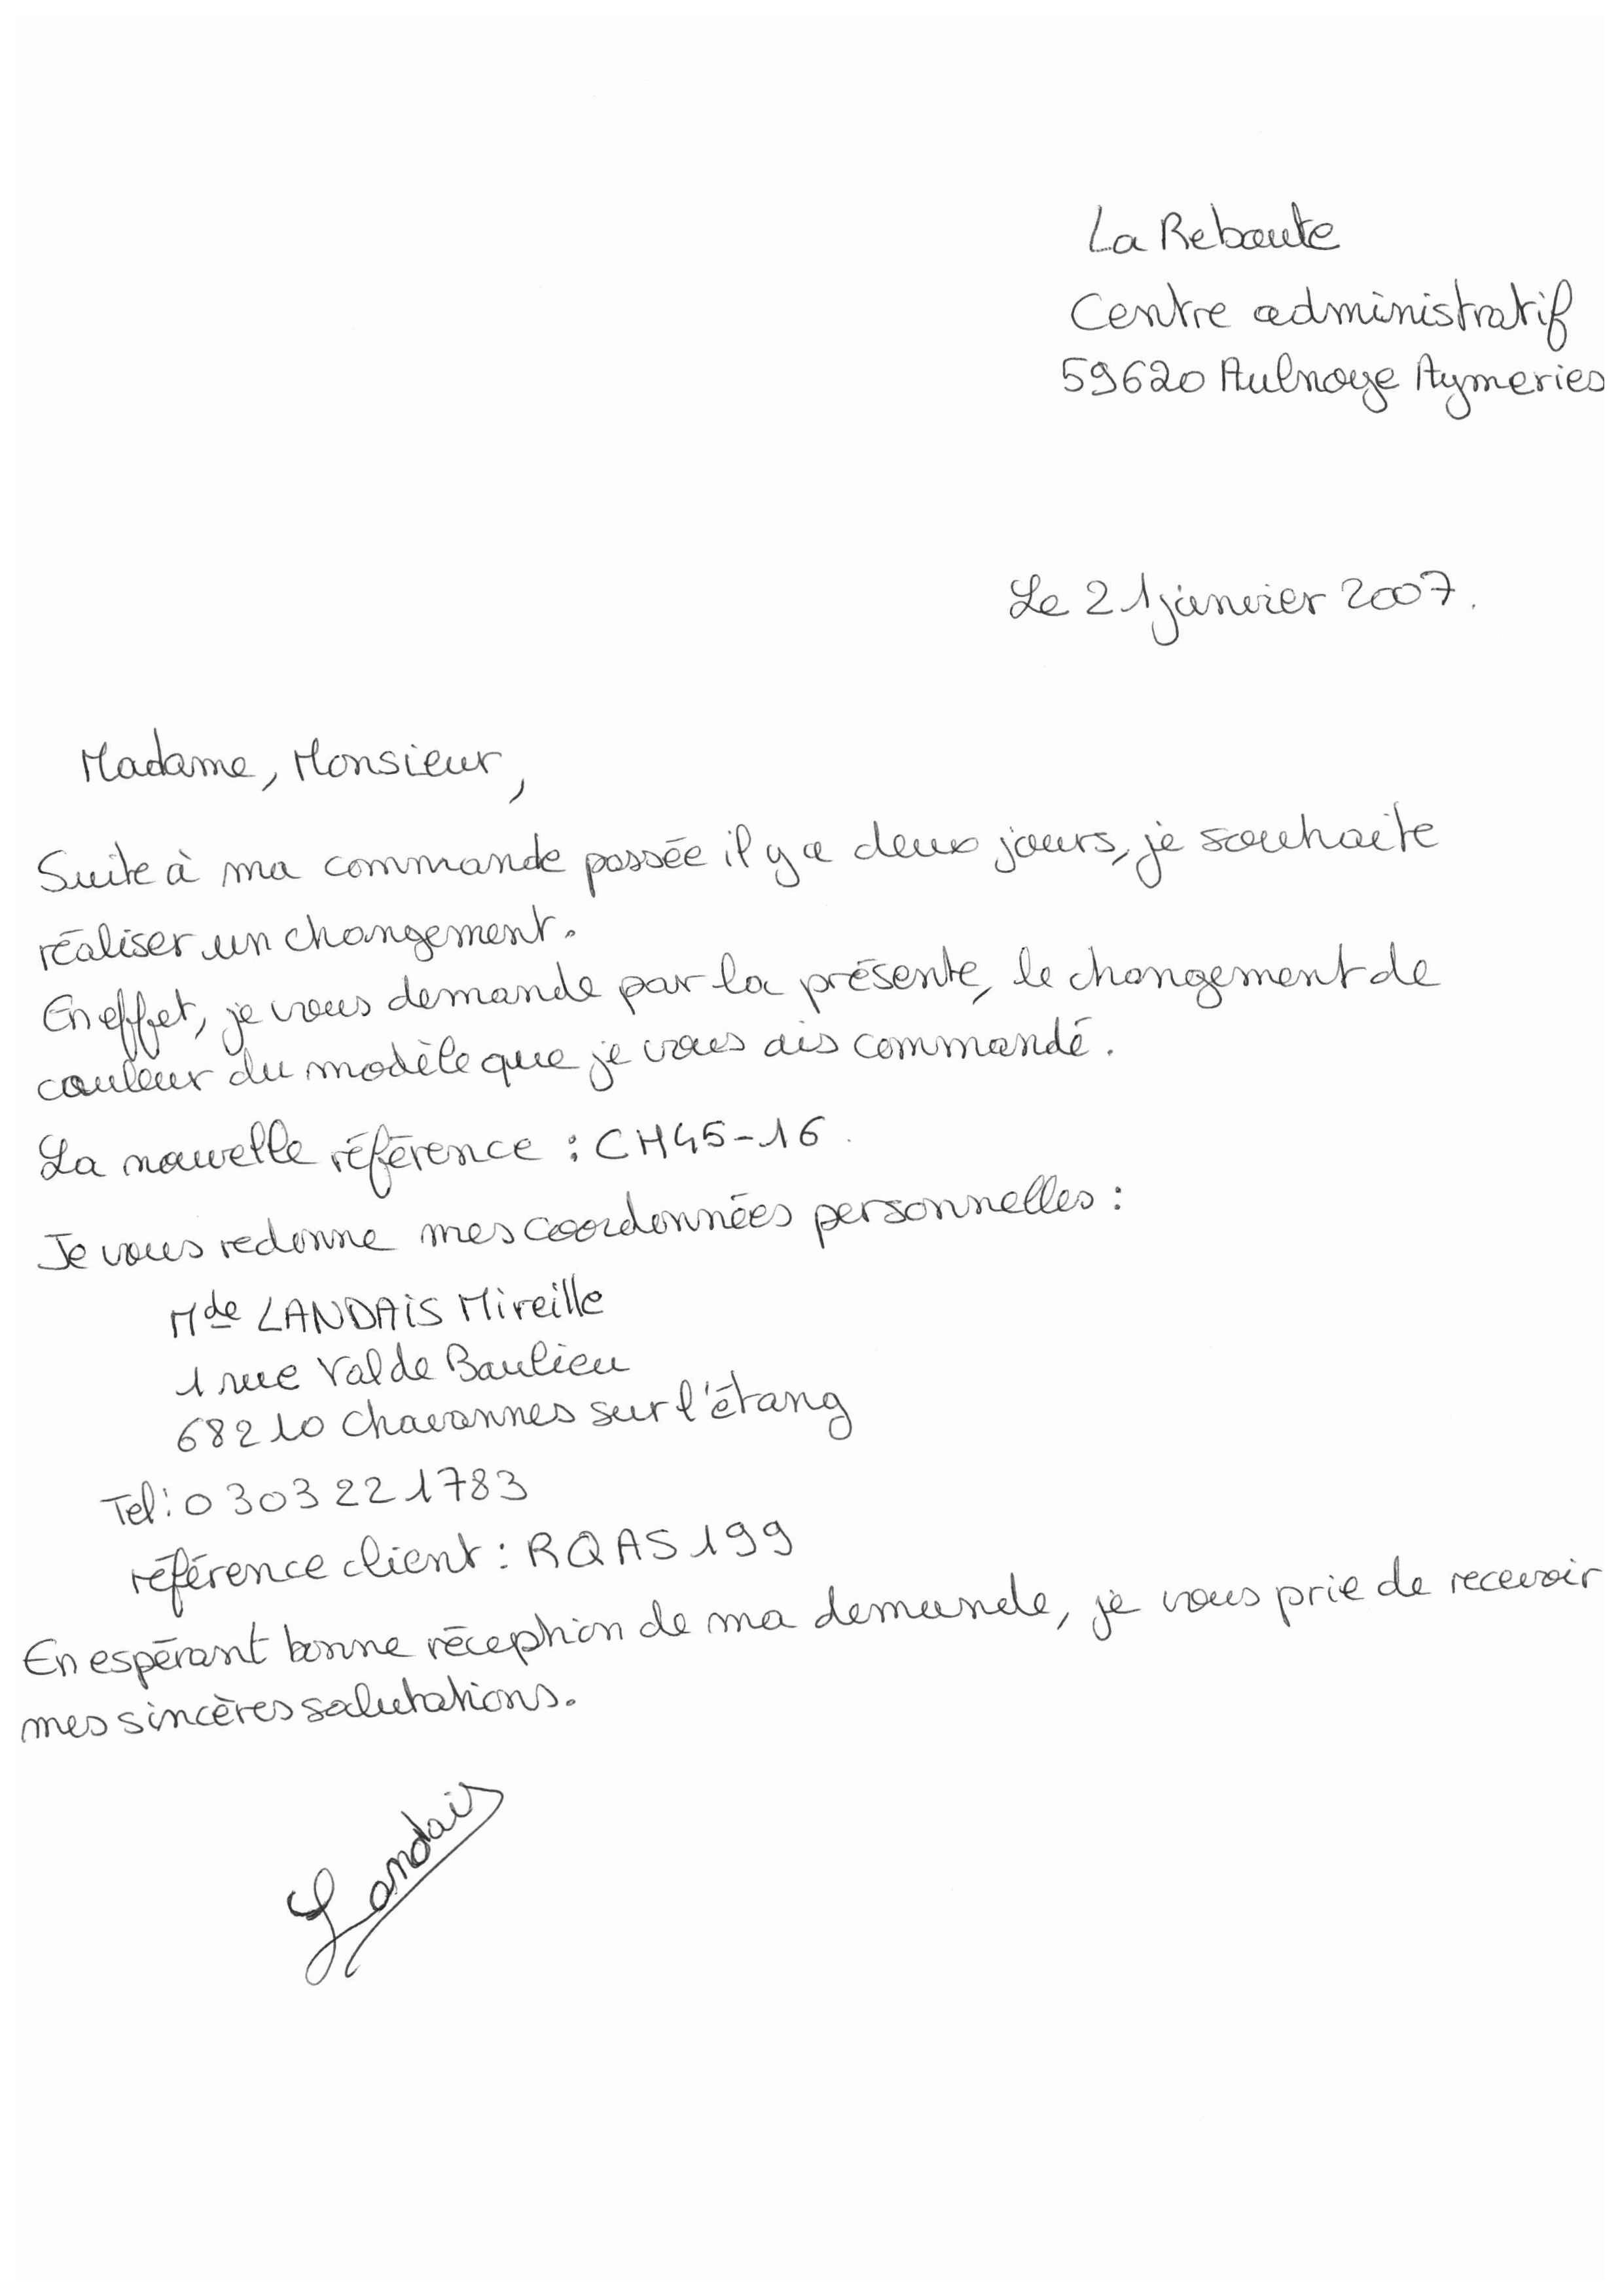 La Reboute
Centre administratif
59620 Aulnoye Aymeries
Le 21 janvier 2007.
Madame, Monsieur,
Suite à ma commande passée il y a deux jours, je souhaite
réaliser un changement.
En effet, je vous demande par la présente, le changement de
couleur du modèle que je vous ais commandé.
La nouvelle référence : CH45-16.
Je vous redonne mes coordonnées personnelles :
Mde LANDAIS Mireille
1 rue Val de Baulieu
68210 Chavannes sur l'étang
Tel : 0303221783
référence client : RQAS199
En espérant bonne réception de ma demande, je vous prie de recevoir
mes sincères salutations.
Landais